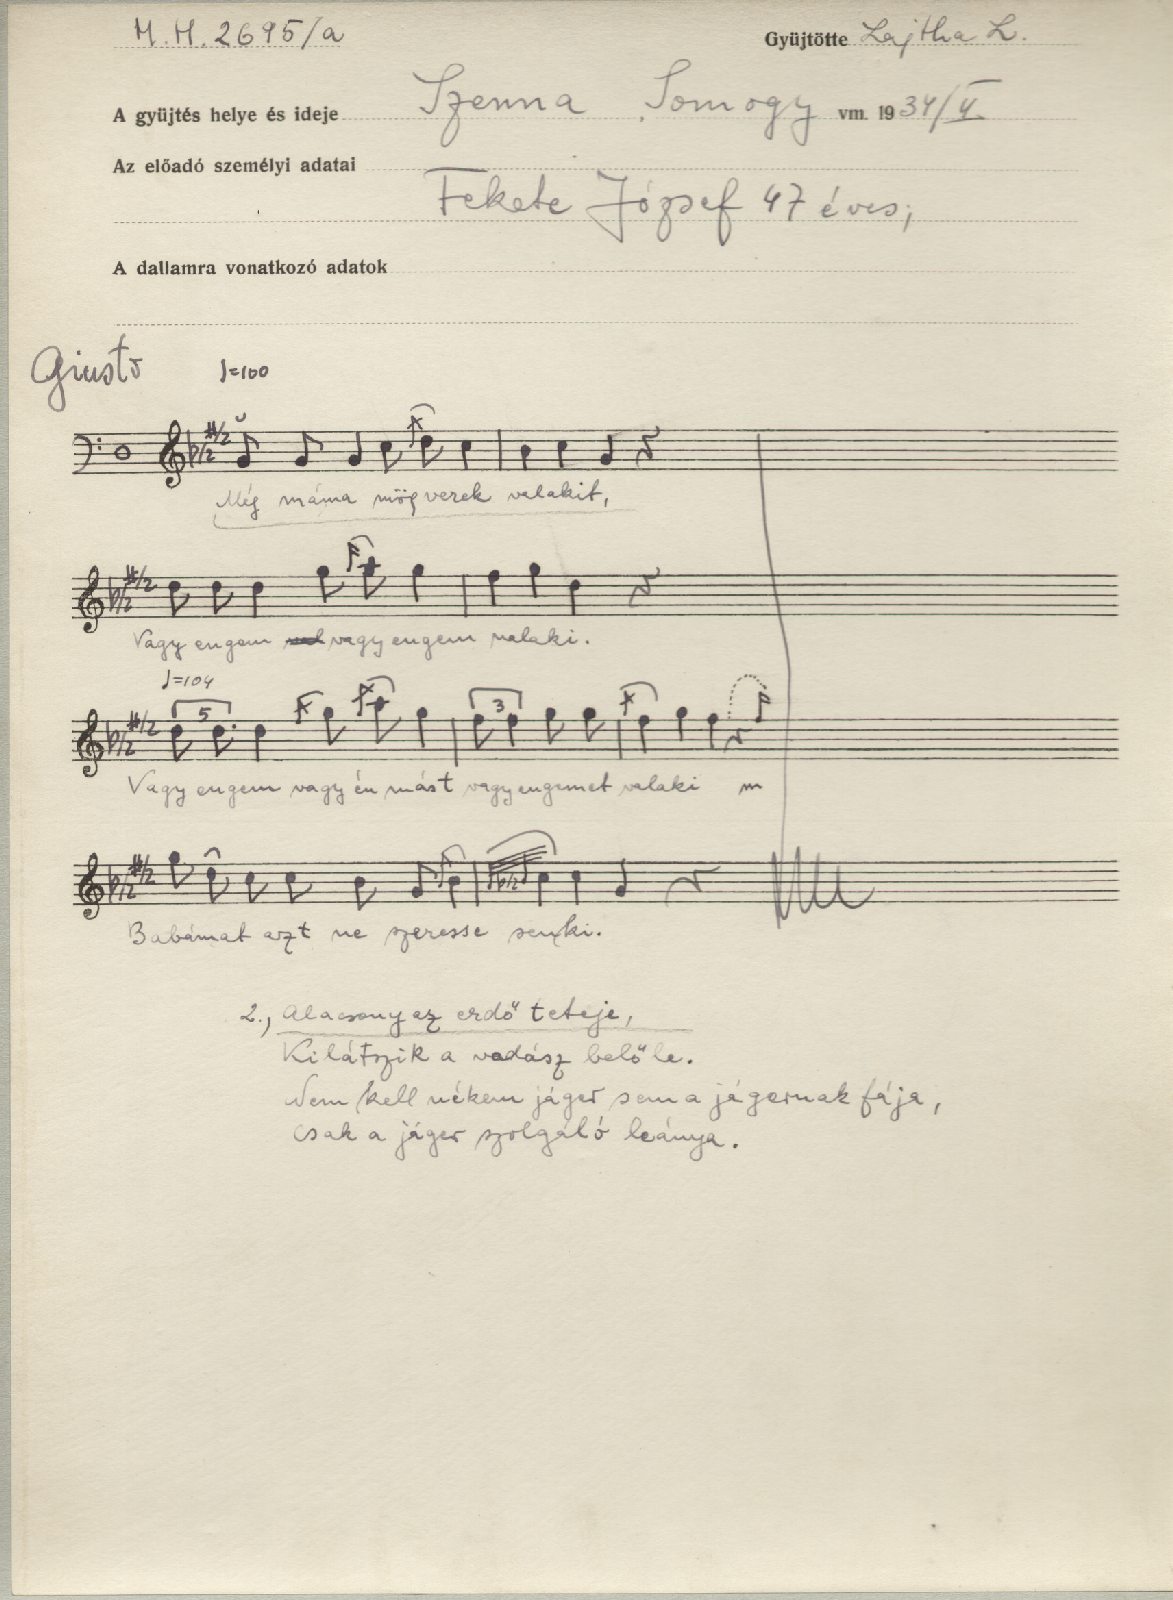 M.H. 2695/a
Gyüjtötte Lajtha L.
A gyüjtés helye és ideje Szenna Somogy vm. 1934/V.
Az előadó személyi adatai
Fekete József 47 éves;
A dallamra vonatkozó adatok
Giusto ♩=100
Még máma mög verek valakit,
Vagy engem vagy engem valaki.
♩=104
5 3
Vagy engem vagy én mást vagy engemet valaki m
Babámat azt ne szeresse senki.
2., Alacsony az erdő teteje,
Kilátszik a vadász belőle.
Nem kell nékem jáger sem a jágernak fája,
Csak a jáger szolgáló leánya.